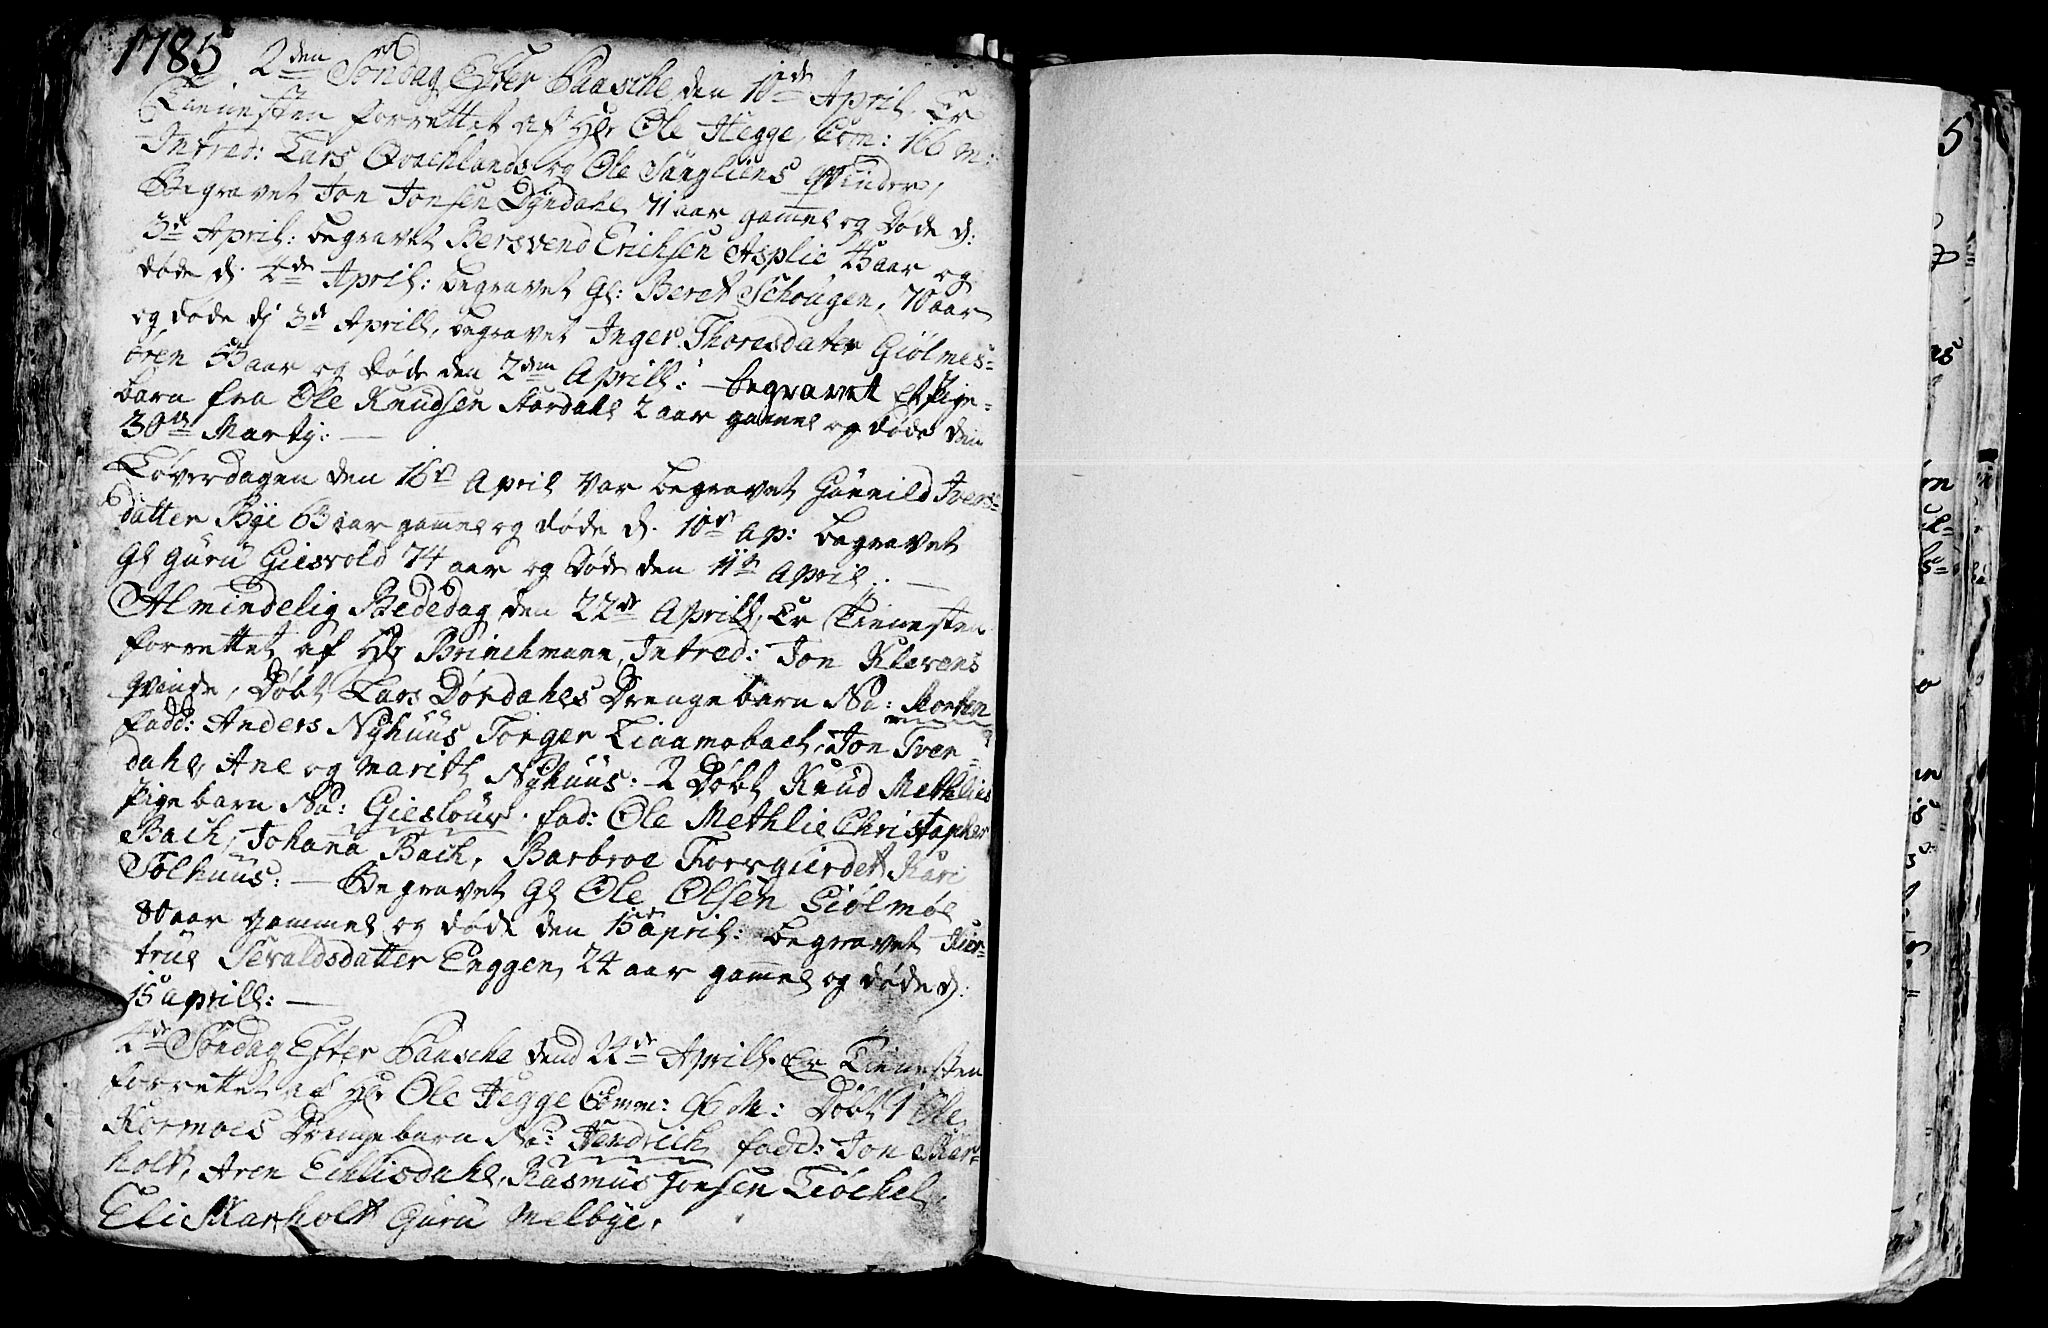 1785
2den Søndag Efter Paasche den 10de April, Er
Tienesten forrettet af Hr Ole Hegge, Com: 166 m:
Intred: Lars Qvachlands og Ole Sangliens Qvinder,
Begravet Jon Jonsen Dyndahl 71 aar gammel og Døde d:
3de April: begravet Bersvend Erichsen Asplie aar og
døde d: 4de April: begravet Gl: Beret Schougen, 70 aar
og døde d: 3de Aprill, begravet Inger Thoresdatter Giølmes-
ören aar og Døde den 2den Aprill: begravet et Pige-
barn fra Ole Knudsen Aardahl 2 aar gammel og døde den
30te Martij: —
Løverdagen den 16de April var begravet Gunnild Ivers-
datter Bye 63 aar gammel og døde d. 10de Ap: begravet
Gl Guru Giesvold 74 aar og Døde den 11te April. —
Almindelig Bededag den 22de Aprill, Er Tienesten
forrettet af Hr Brinchmann, Intred: Jon Klevens
Qvinde, Døbt Lars Dørdahls Drengebarn Na: Morten
fadd: Anders Nyhuus Torger Liaamobach, Jon Tver-
dahl, Ane og Marith Nyhuus: 2 Døbt Knud Methlies
Pigebarn Na: Gieslour. fad: Ole Methlie Christopher
Bach, Johana Bach, Barbroe Forrgierdet Kari
Solhuus: — Begravet Gl Ole Olsen Giølmøe
80 aar gammel og døde den 15de april: begravet Kier-
true Sevaldsdatter Enggen, 24 aar gammel og døde d:
15 aprill: —
4de Søndag Efter Paasche dend Aprill. Er Tienesten
forrettet af Hr Ole Hegge Comm: 96 M: Døbt 1 Ole
Kormoes Drengebarn Na: Hendrich fadd: Jon Skar-
holt, Aren Echlisdahl, Rasmus Jonsen Tiøchel,
Eli Skarholt Guru Melbye.